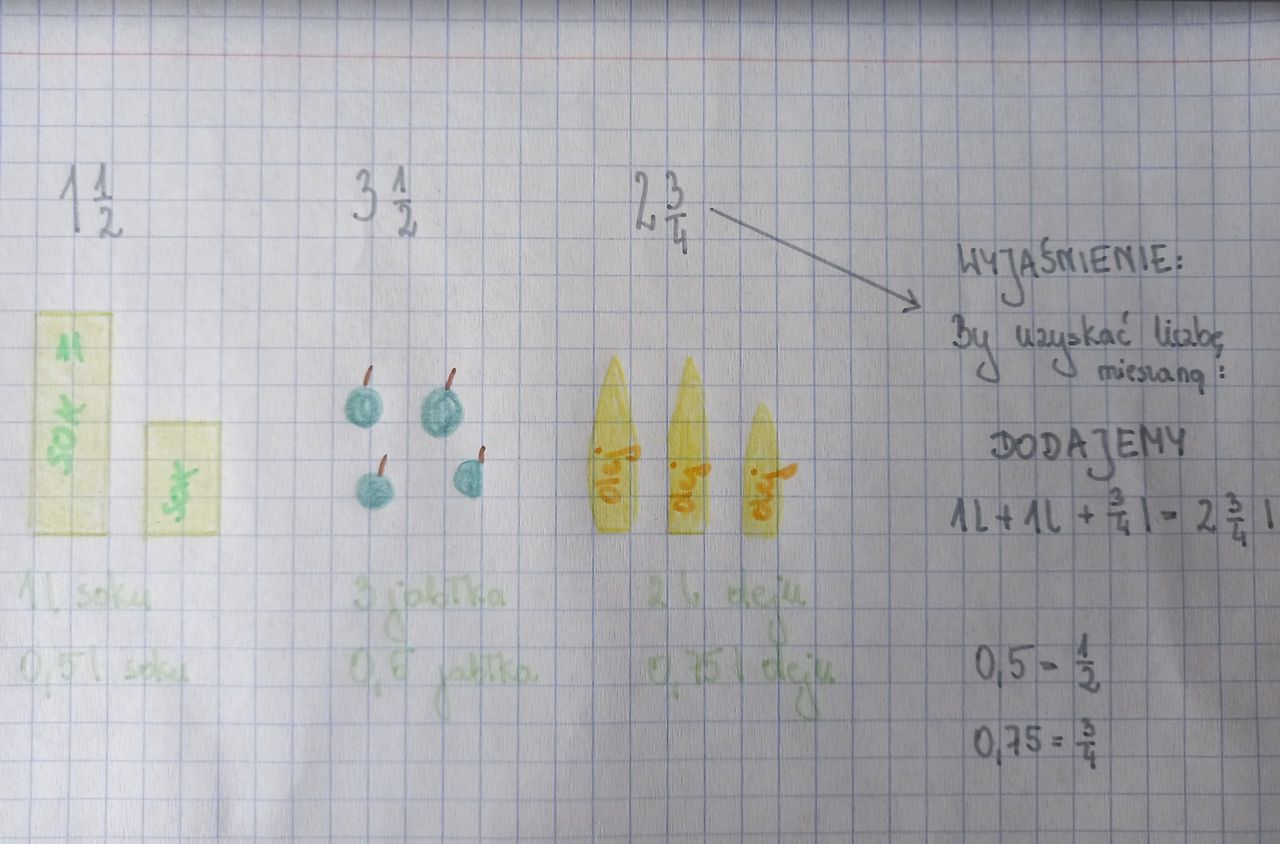 1 1/2
3 1/2
2 3/4
WYJAŚNIENIE:
By uzyskać liczbę
mieszaną:
DODAJEMY
1l + 1l + 3/4 l = 2 3/4 l
SOK 1l
SOK
olej
olej
olej
1l soku
3 jabłka
2 l oleju
0,5 l soku
0,5 jabłka
0,75 l oleju
0,5 = 1/2
0,75 = 3/4